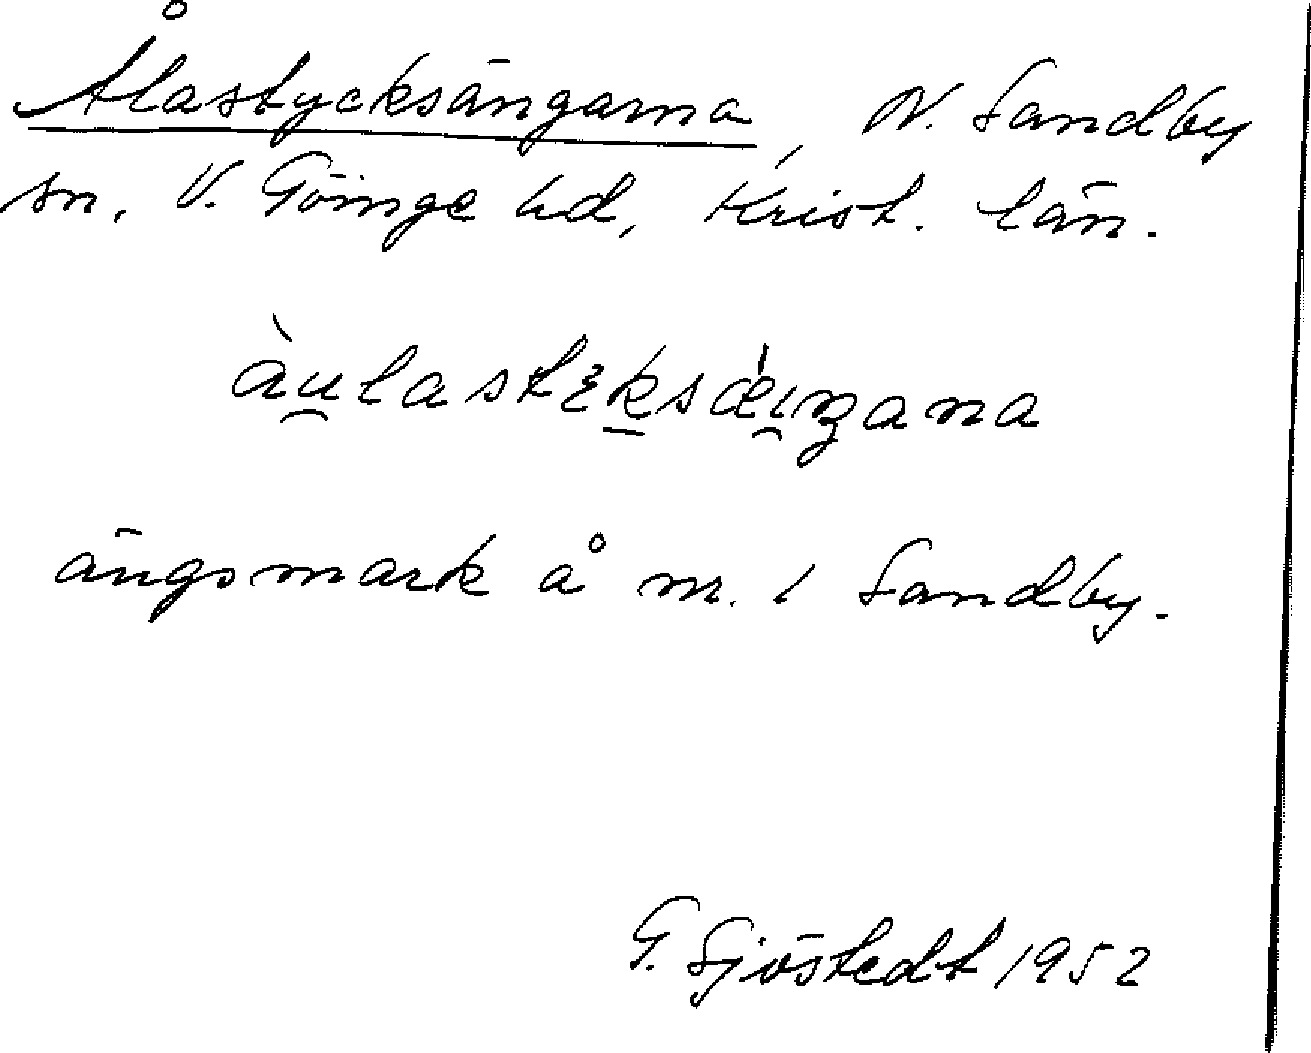 Ålastycksängarna, N. Sandby
sn, V. Göinge hd, Krist. län.
ängsmark å nr. 1 Sandby.
G. Sjöstedt 1952